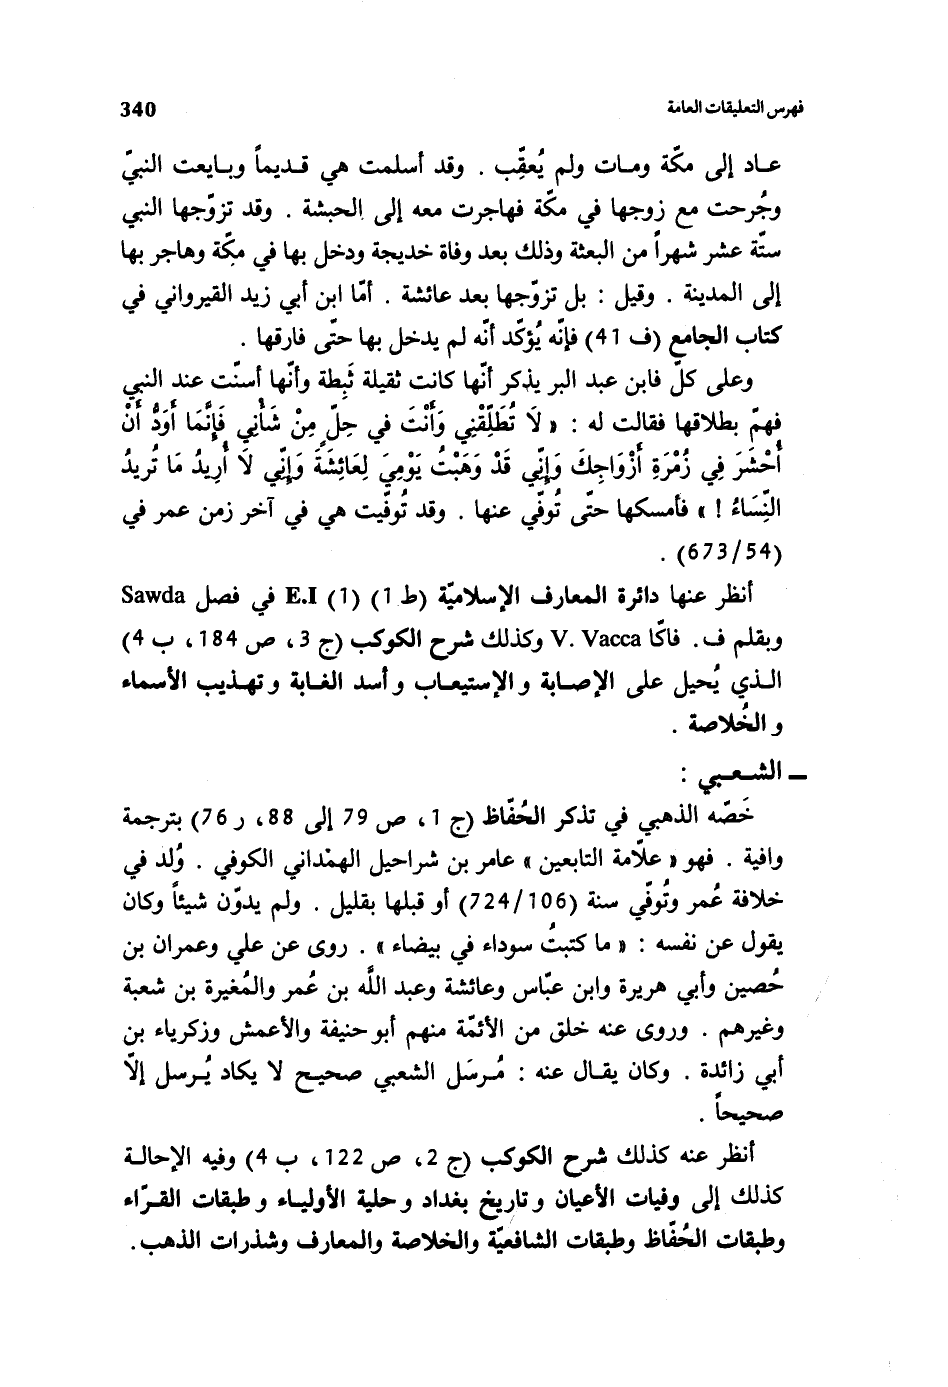 فهرس التعليقات العامة 340
عـاد إلى مكّة ومـات ولم يُعقِّب . وقد أسلمت هي قـديماً وبـايعت النبيّ
وجُرحت مع زوجها في مكّة فهاجرت معه إلى الحبشة . وقد تزوّجها النبي
ستّة عشر شهراً من البعثة وذلك بعد وفاة خديجة ودخل بها في مكّة وهاجر بها
إلى المدينة . وقيل : بل تزوّجها بعد عائشة . أمّا ابن أبي زيد القيرواني في
كتاب الجامع (ف 41) فإنّه يُؤكّد أنّه لم يدخل بها حتّى فارقها .
وعلى كلّ فابن عبد البر يذكر أنّها كانت ثقيلة ثَبِطة وأنّها أسنّت عند النبي
فهمّ بطلاقها فقالت له : « لَا تُطَلِّقْنِي وَأَنْتَ في حِلّ مِنْ شَأْنِي فَإِنَّمَا أَوَدُّ أَنْ
أُحْشَرَ فِي زُمْرَةِ أَزْوَاجِكَ وَإِنِّي قَدْ وَهَبْتُ يَوْمِيَ لِعَائِشَةَ وَإِنِّي لَا أُرِيدُ مَا تُرِيدُ
النِّسَاءُ ! » فأمسكها حتّى تُوفّي عنها . وقد تُوفّيت هي في آخر زمن عمر في
(673/54) .
أنظر عنها دائرة المعارف الإسلاميّة (ط 1) (1) E.I في فصل Sawda
وبقلم ف. فاكّا V. Vacca وكذلك شرح الكوكب (ج 3، ص 184، ب 4)
الـذي يُحيل على الإصـابة و الإستيعـاب و أسد الغـابة و تهـذيب الأسماء
و الخُلاصة .
ــ الشـعـبـي :
خَصّه الذهبي في تذكر الحُفّاظ (ج 1، ص 79 إلى 88، ر 76) بترجمة
وافية . فهو « علّامة التابعين » عامر بن شراحيل الهمْداني الكوفي . وُلد في
خلافة عُمر وتُوفّي سنة (724/106) أو قبلها بقليل . ولم يدوّن شيئاً وكان
يقول عن نفسه : « ما كتبتُ سوداء في بيضاء » . روى عن علي وعمران بن
حُصين وأبي هريرة وابن عبّاس وعائشة وعبد اللَّه بن عُمر والمُغيرة بن شعبة
وغيرهم . وروى عنه خلق من الأئمّة منهم أبو حنيفة والأعمش وزكرياء بن
أبي زائدة . وكان يقـال عنه : مُـرسَل الشعبي صحيـح لا يكاد يُـرسل إلّا
صحيحاً .
أنظر عنه كذلك شرح الكوكب (ج 2، ص 122، ب 4) وفيه الإحالـة
كذلك إلى وفيات الأعيان و تاريخ بغداد و حلية الأوليـاء و طبقات القـرّاء
وطبقات الحُفّاظ وطبقات الشافعيّة والخلاصة والمعارف وشذرات الذهب .